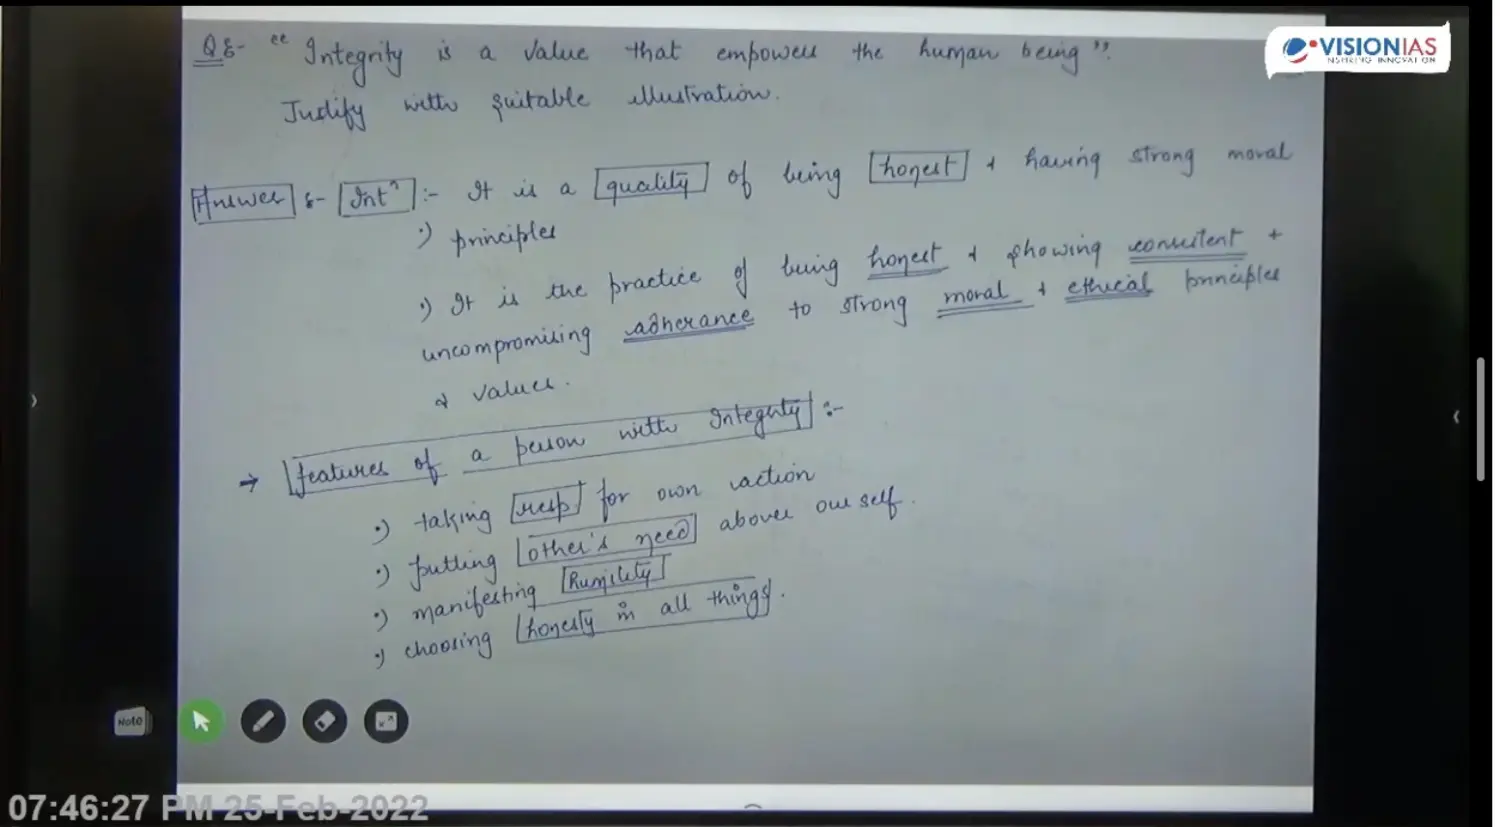 Q8- "Integrity is a value that empowers the human being".
Justify with suitable illustration.
VISIONIAS
INSPIRING INNOVATION
Answer :- Intⁿ :- It is a quality of being honest & having strong moral
principles
It is the practice of being honest & showing consistent +
uncompromising adherance to strong moral & ethical principles
& values.
→ features of a person with Integrity :-
taking resp for own action
putting other's need above ourself.
manifesting Humility
choosing honesty in all things.
Note
07:46:27 PM 25-Feb-2022